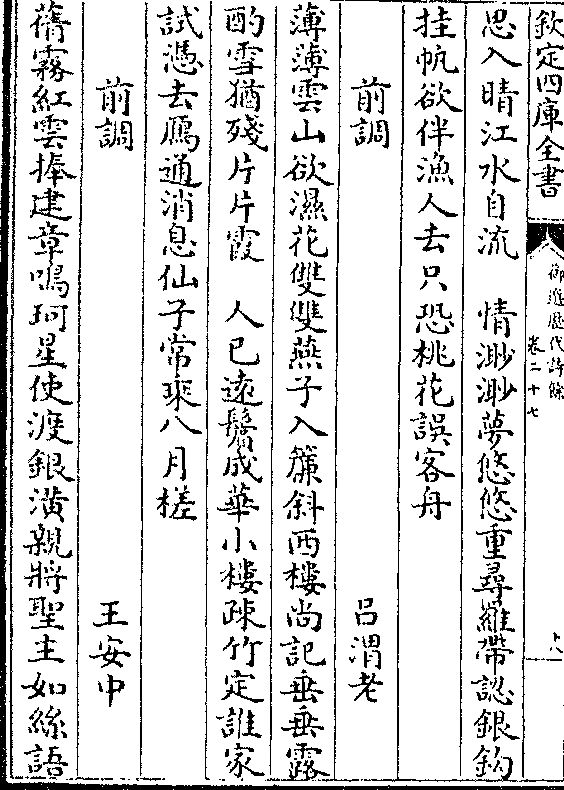 欽定四庫全書
御選歷代詩餘
卷二十七
十八
思入晴江水自流　情渺渺夢悠悠重尋羅帶認銀鈎
挂帆欲伴漁人去只恐桃花誤客舟
前調　呂渭老
薄薄雲山欲濕花雙雙燕子入簾斜西樓尚記垂垂露
酌雪猶殘片片霞　人已遠鬢成華小樓疎竹定誰家
試憑去鴈通消息仙子常乘八月槎
前調　王安中
蒨霧紅雲捧建章鳴珂星使渡銀潢親將聖主如絲語